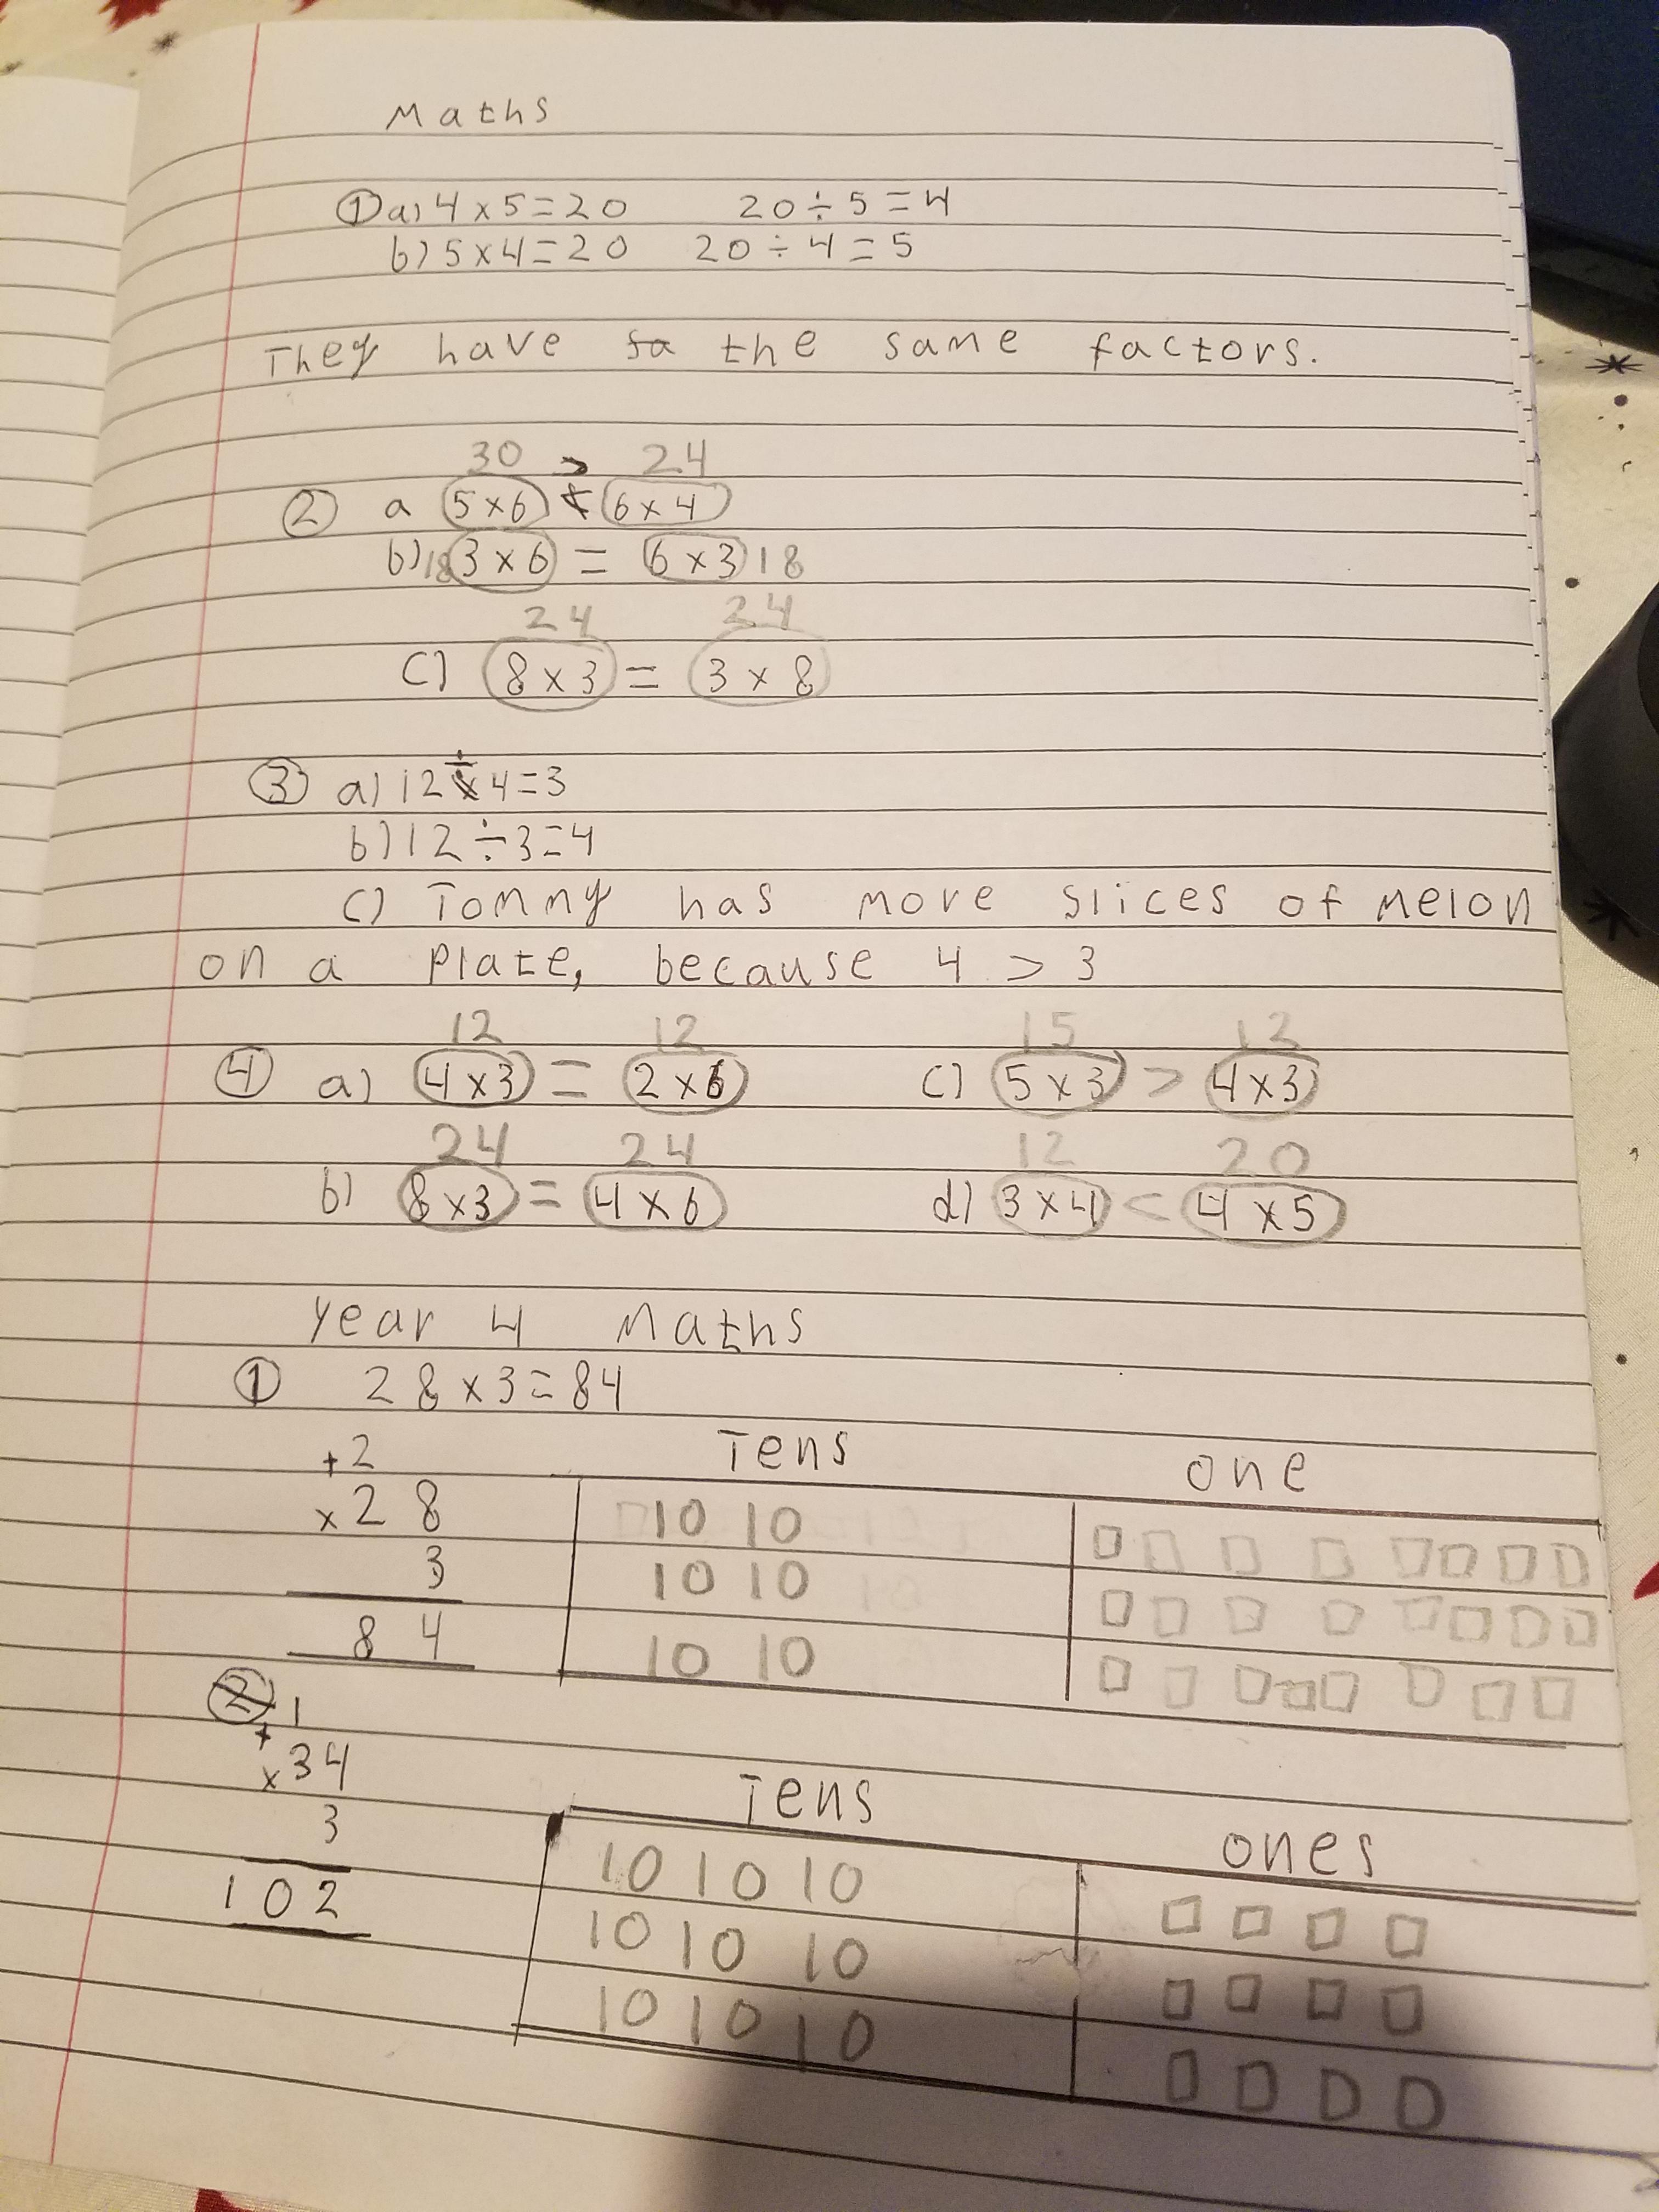 Maths
① a) 4 x 5 = 20 20 ÷ 5 = 4
b) 5 x 4 = 20 20 ÷ 4 = 5
They have fa the same factors.
30 > 24
② a 5 x 6 < 6 x 4
b) 18 3 x 6 = 6 x 3 18
24 24
c) 8 x 3 = 3 x 8
③ a) 12 ÷ 4 = 3
b) 12 ÷ 3 = 4
c) Tommy has more slices of melon
on a plate, because 4 > 3
12 12 15 12
④ a) 4 x 3 = 2 x 6 c) 5 x 3 > 4 x 3
24 24 12 20
b) 8 x 3 = 4 x 6 d) 3 x 4 < 4 x 5
Year 4 Maths
① 28 x 3 = 84
+2 Tens one
x 28 10 10
3 10 10
84 10 10
② 1
+
x 34 Tens
3 ones
102 10 10 10
10 10 10
10 10 10